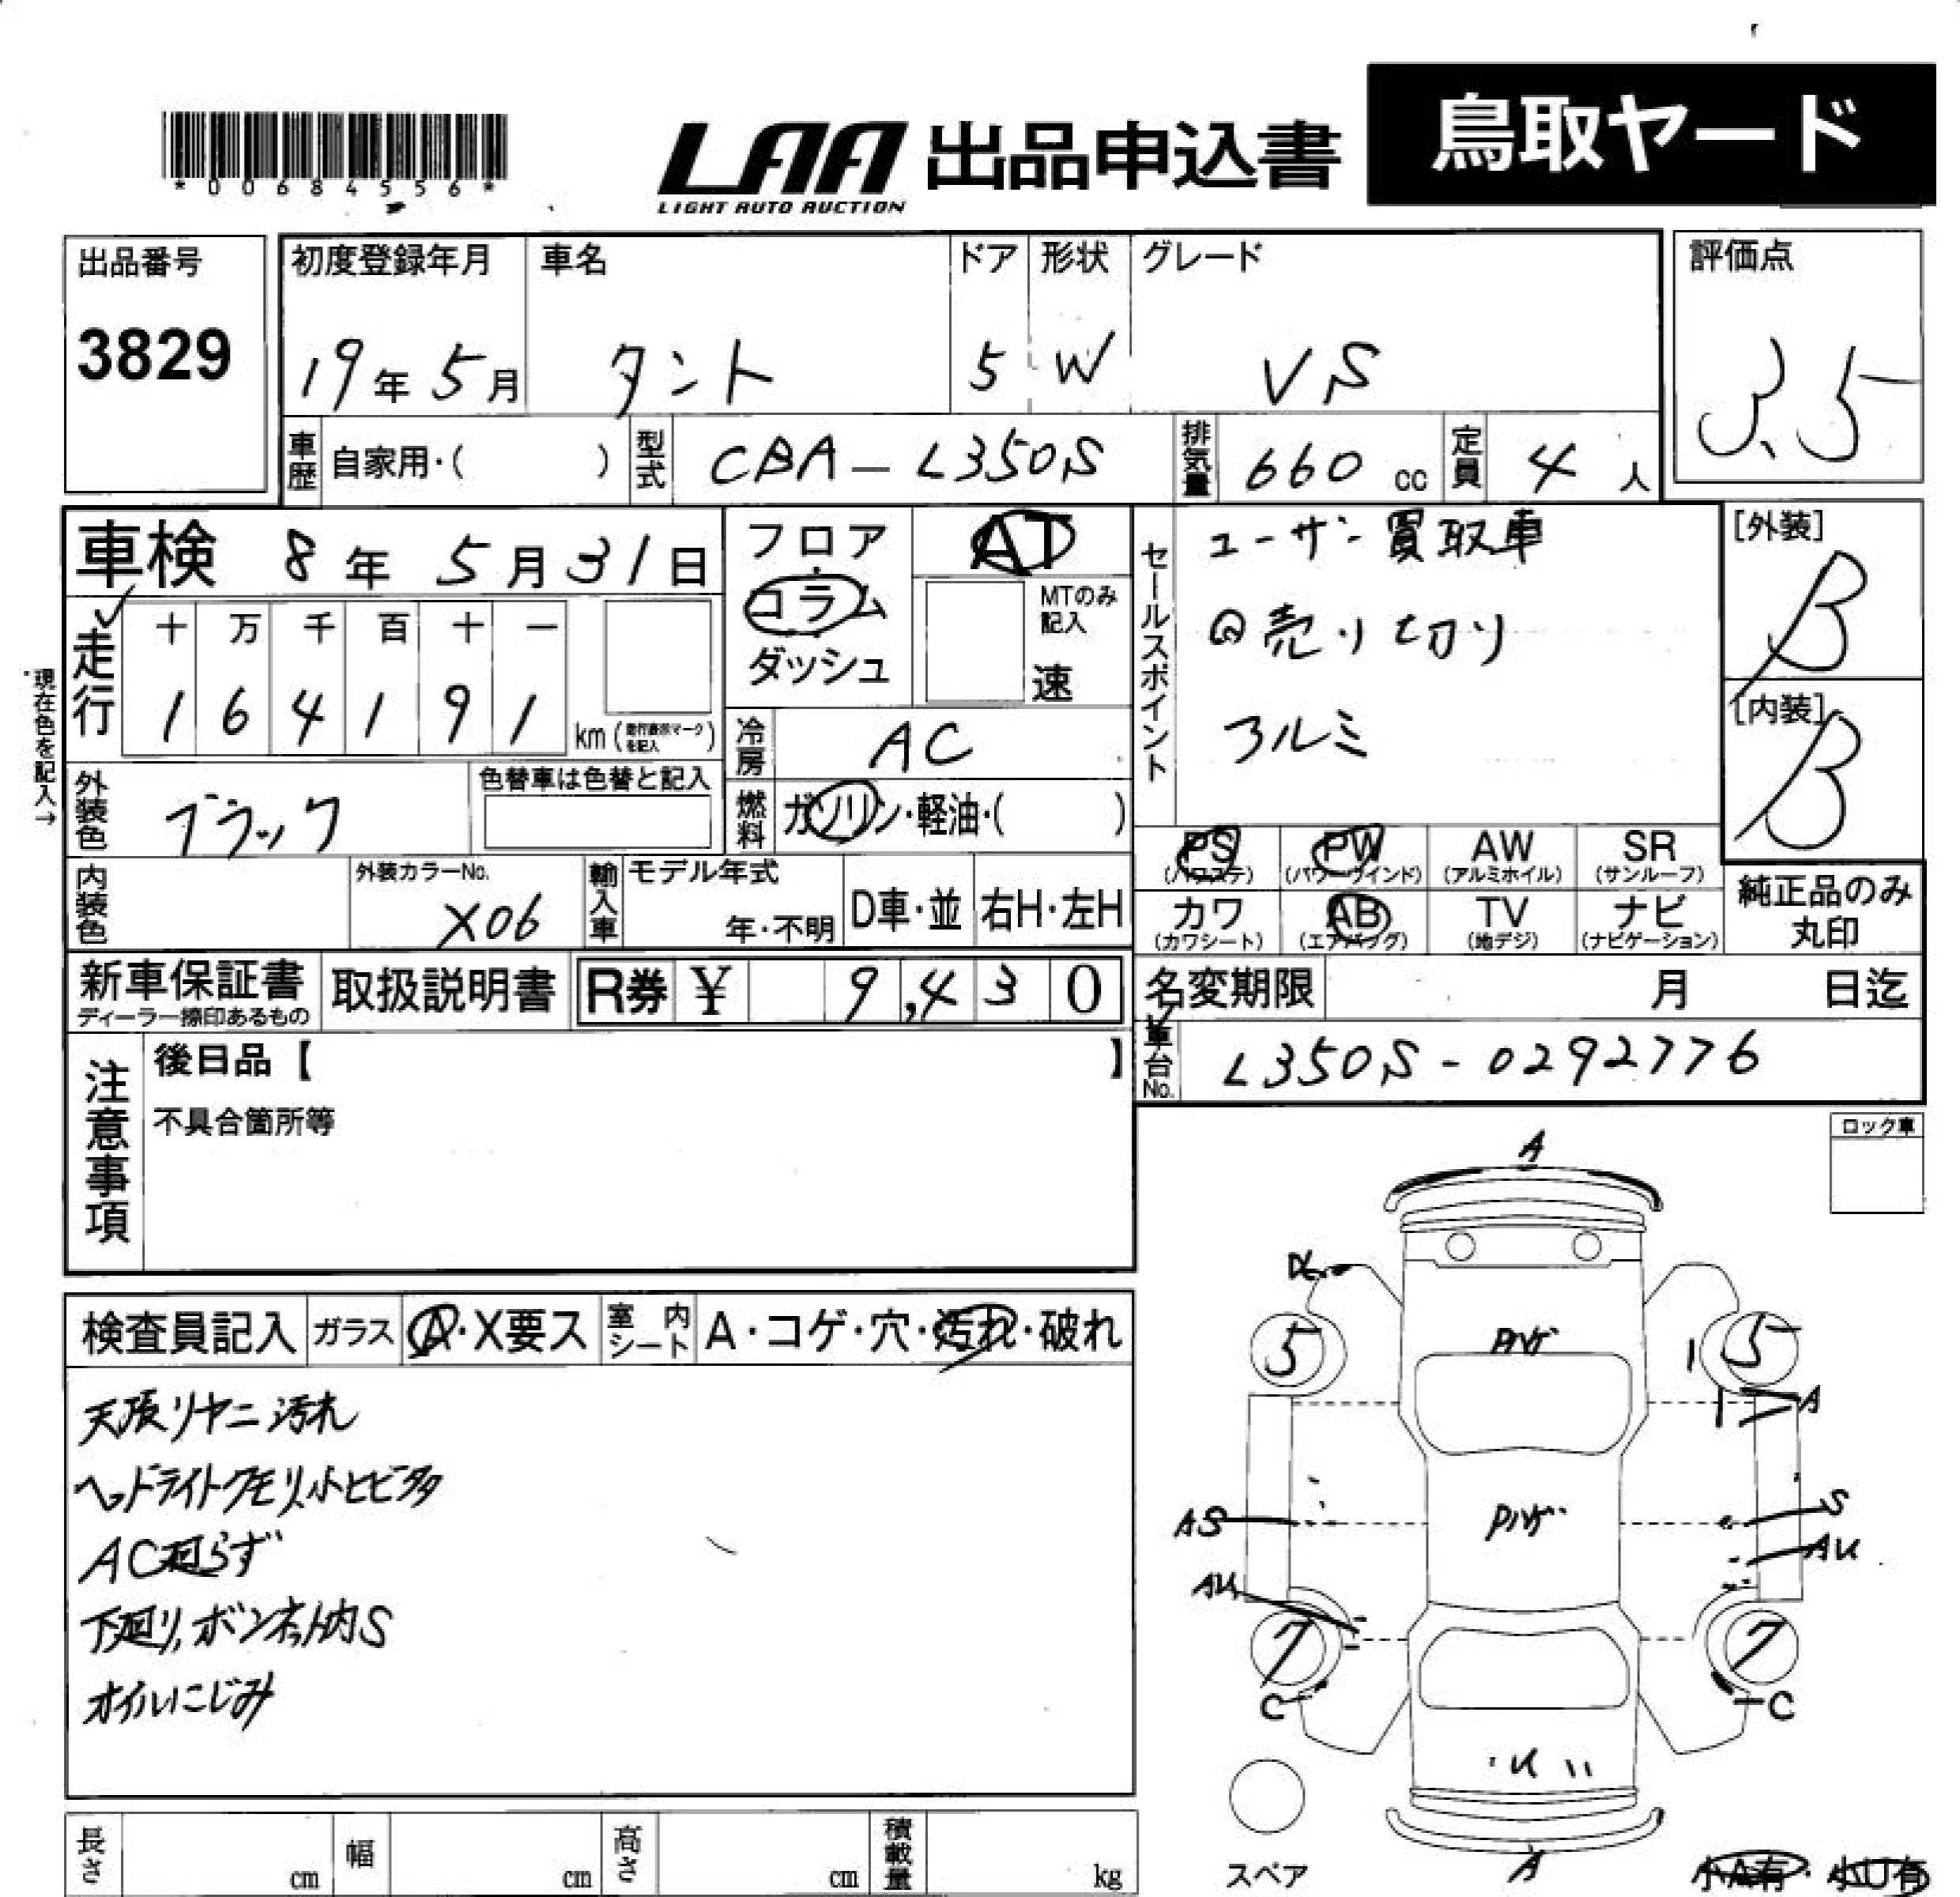 *00684556*
LAA 出品申込書 鳥取ヤード
LIGHT AUTO AUCTION
出品番号
3829
初度登録年月 車名 ドア 形状 グレード
19年5月 タント 5 W VS
評価点
3.5
車歴 自家用・( ) 型式 CBA-L350S 排気量 660 cc 定員 4 人
車検 8年 5月31日
フロア
コラム
ダッシュ
AT
MTのみ
記入
速
セールスポイント
ユーザー買取車
◎売り切り
アルミ
[外装]
B
[内装]
B
現在色を記入→
走行
十 万 千 百 十 一
1 6 4 1 9 1
km (走行表示マークを記入)
冷房 AC
外装色 ブラック
色替車は色替と記入
燃料 ガソリン・軽油・( )
PS PW AW SR
(パワステ) (パワーウインド) (アルミホイル) (サンルーフ)
カワ AB TV ナビ
(カワシート) (エアバッグ) (地デジ) (ナビゲーション)
純正品のみ
丸印
内装色
外装カラーNo.
X06
輸入車
モデル年式
年・不明
D車・並 右H・左H
新車保証書
ディーラー捺印あるもの
取扱説明書 R券 ¥ 9,430
名変期限 月 日迄
車台No. L350S-0292776
注意事項
後日品【 】
不具合箇所等
ロック車
検査員記入 ガラス A・X要ス 室内シート A・コゲ・穴・汚れ・破れ
天張リヤニ汚れ
ヘッドライトクモリ,小ヒビ多
AC廻らず
下廻り,ボンネット内S
オイルにじみ
A
5
5
A
AS
S
AU
AU
7
7
C
C
U
A
スペア
小A有・小U有
長さ cm 幅 cm 高さ cm 積載量 kg